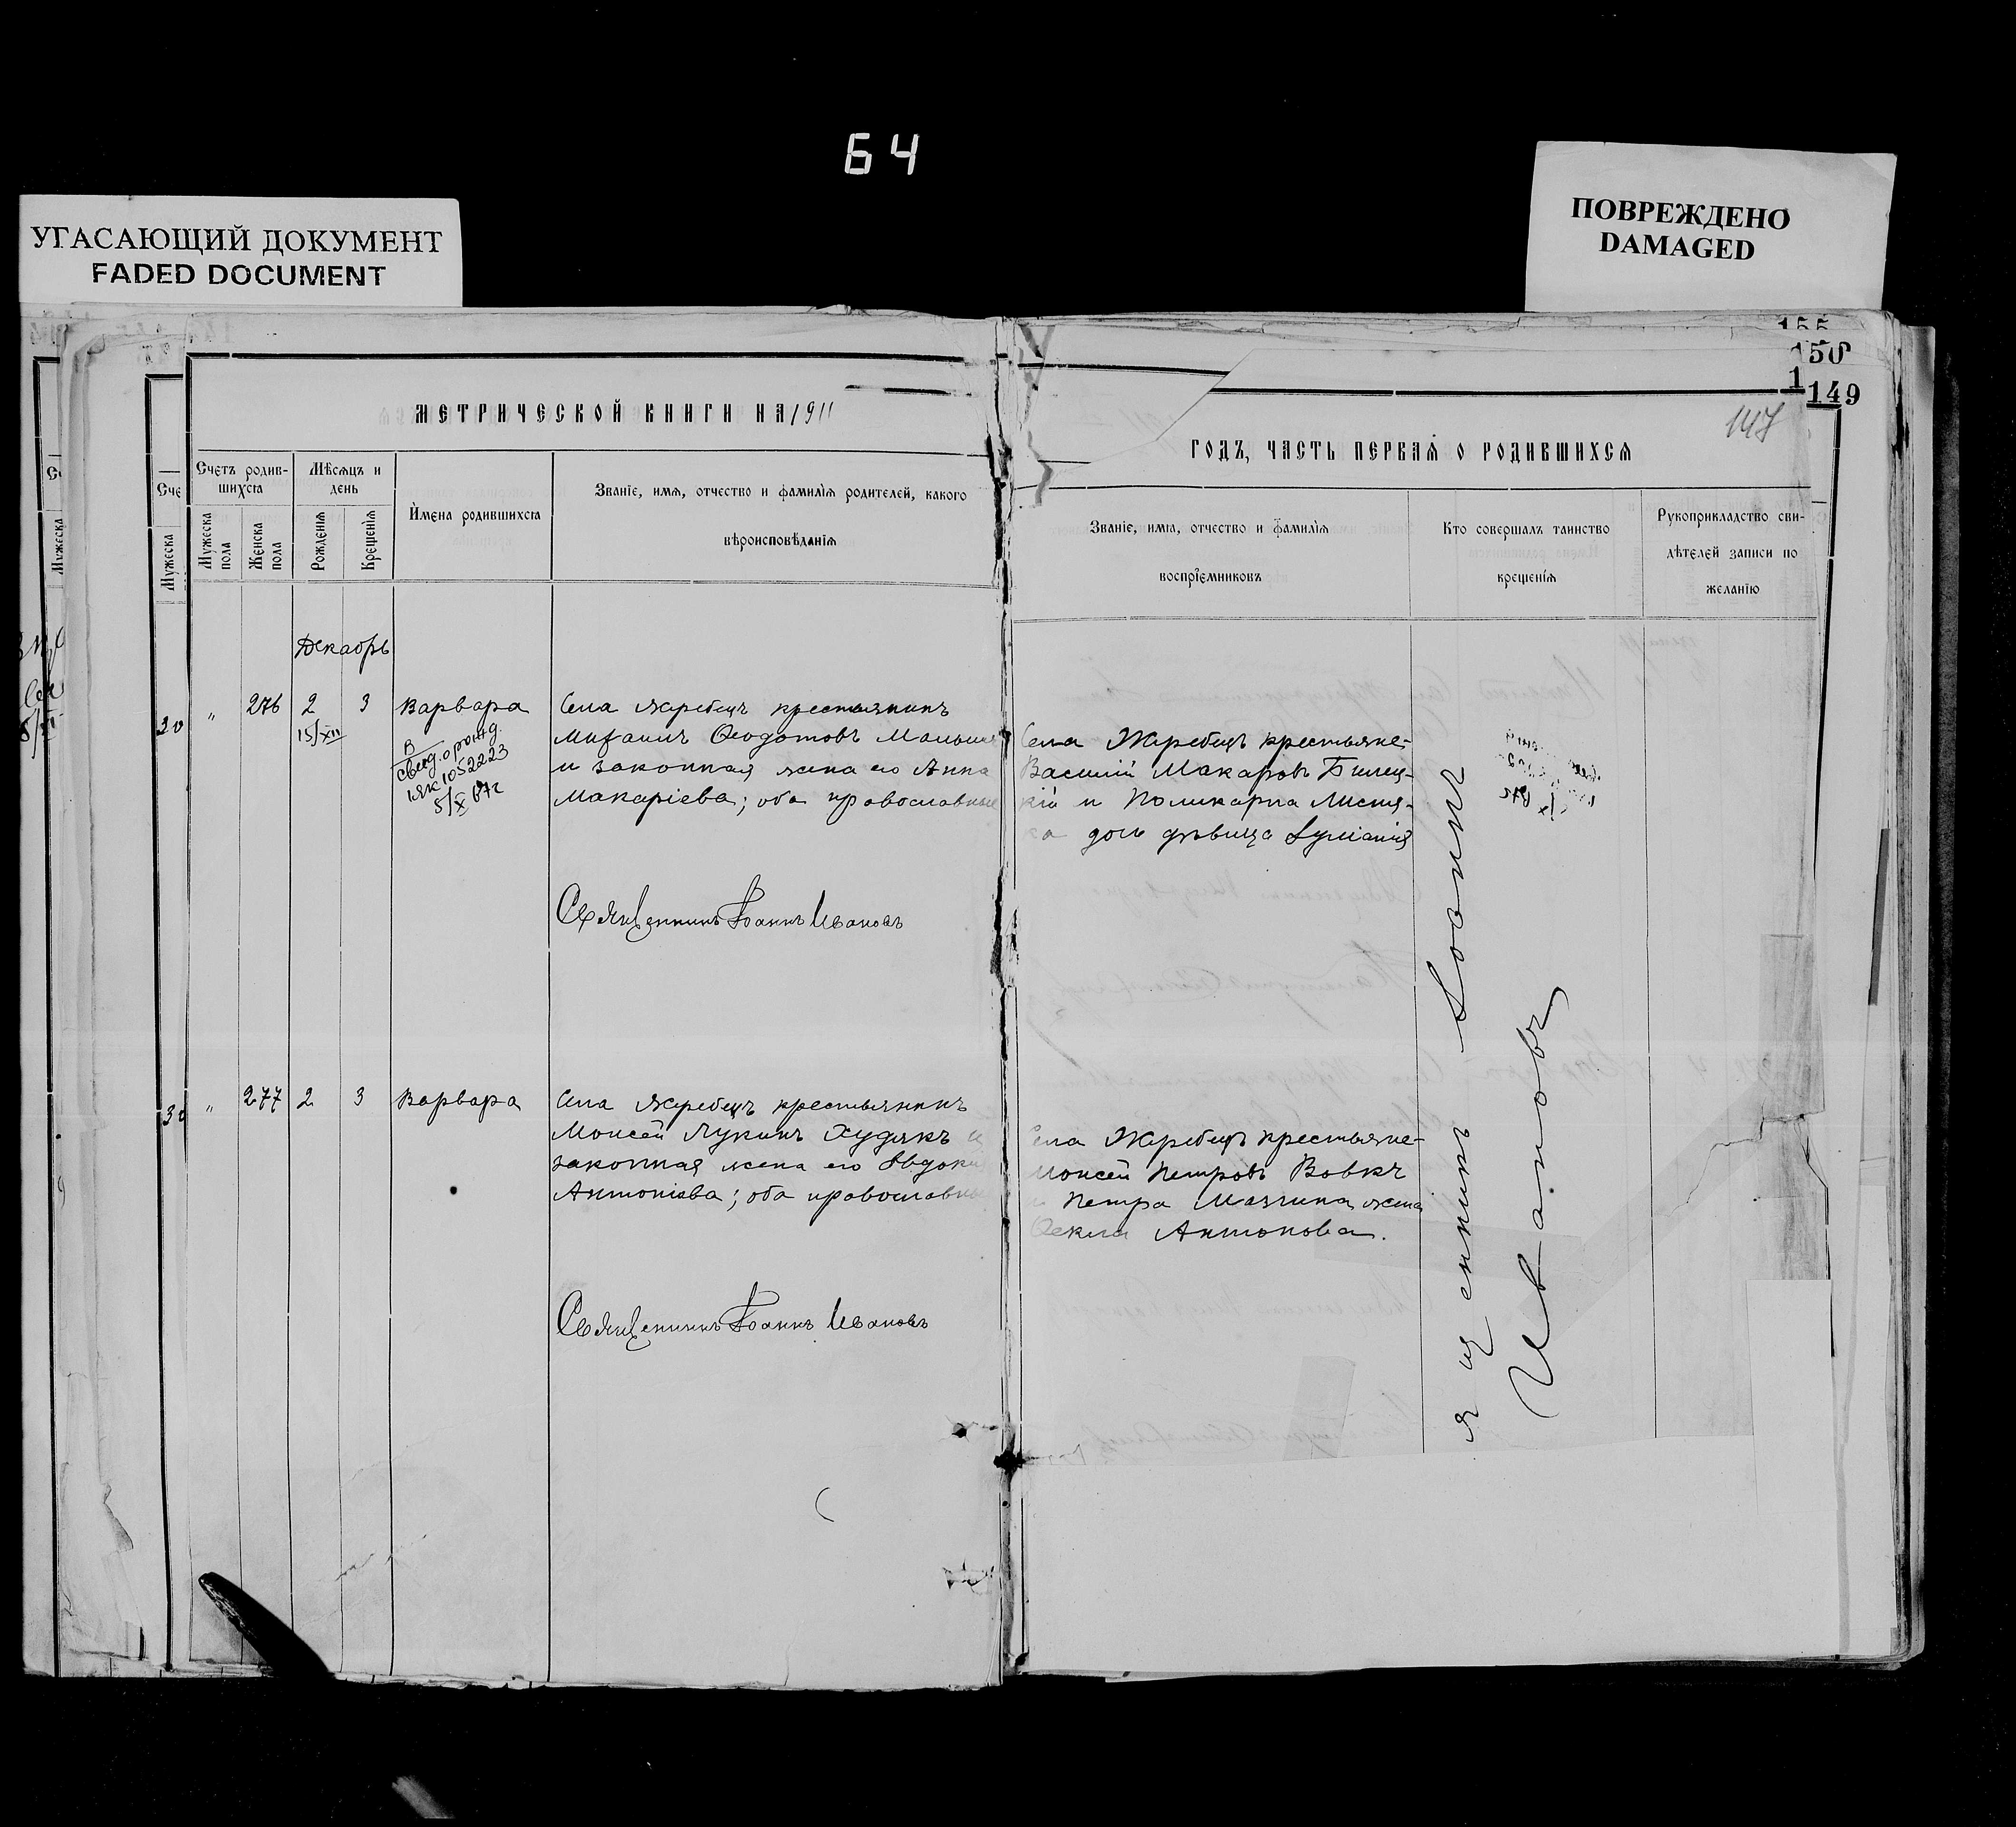 64
УГАСАЮЩИЙ ДОКУМЕНТ
FADED DOCUMENT
ПОВРЕЖДЕНО
DAMAGED
155
150
1
149
147
МЕТРИЧЕСКОЙ КНИГИ НА 1911
ГОДЪ, ЧАСТЬ ПЕРВАЯ О РОДИВШИХСЯ
Счетъ родив-
шихся
Мужеска пола
Женска пола
Мѣсяцъ и
день
Рожденія
Крещенія
Имена родившихся
Званіе, имя, отчество и фамилія родителей, какого
вѣроисповѣданія
Званіе, имя, отчество и фамилія
воспріемниковъ
Кто совершалъ таинство
крещенія
Рукоприкладство сви-
дѣтелей записи по
желанію
Сче
Мужеска
Мужеска
Декабрь
" 276 2 3 Варвара
15/XII
В
свид. о рожд.
IЯК 1052223
5/X 67г
Села Жеребецъ крестьянинъ
Михаилъ Ѳеодотовъ
и законная жена его Анна
Макаріева; оба православные
Священникъ Іоаннъ Ивановъ
Села Жеребецъ крестьяне-
Василій Макаровъ Билец-
кій и Поликарпа
дочь дѣвица
" 277 2 3 Варвара
Села Жеребецъ крестьянинъ
Моисей Лукинъ Худякъ и
законная жена его Евдокія
Антоніева; оба православные
Священникъ Іоаннъ Ивановъ
Села Жеребецъ крестьяне-
Моисей Петровъ Вовкъ
и Петра жена
Ѳекла Антонова.
ященникъ Іоаннъ
Ивановъ